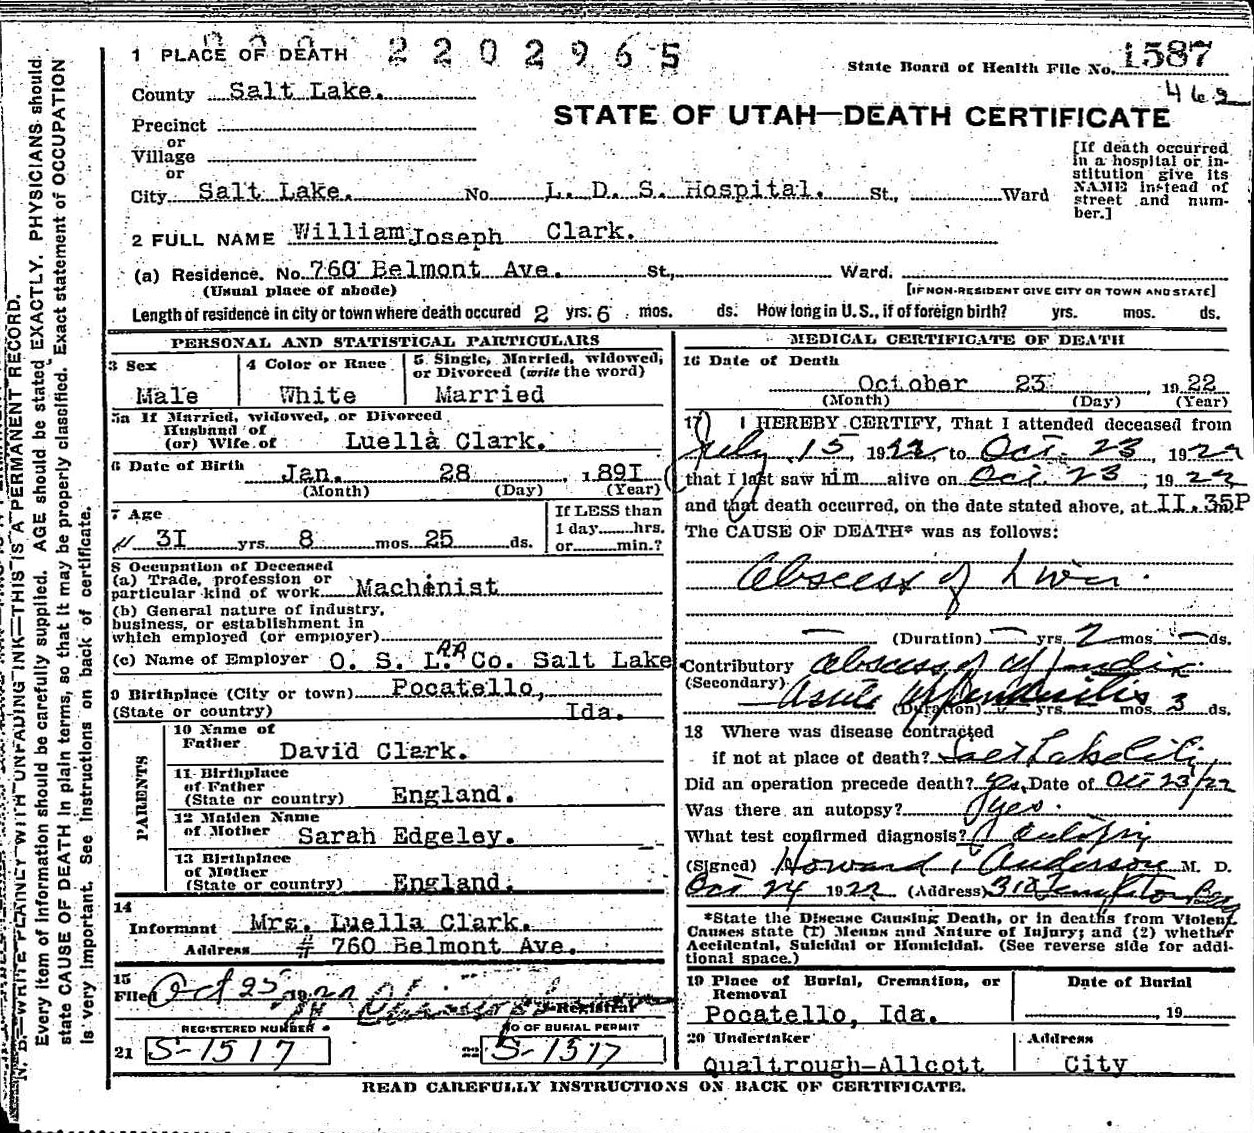 2202965
1 PLACE OF DEATH
State Board of Health File No. 1587
462
County Salt Lake.
STATE OF UTAH—DEATH CERTIFICATE
Precinct
or
Village
or
City Salt Lake. No. L. D. S. Hospital. St., Ward
[If death occurred
in a hospital or in-
stitution give its
NAME instead of
street and num-
ber.]
2 FULL NAME William Joseph Clark.
(a) Residence. No. 760 Belmont Ave. St., Ward.
(Usual place of abode) [IF NON-RESIDENT GIVE CITY OR TOWN AND STATE]
Length of residence in city or town where death occured 2 yrs. 6 mos. ds. How long in U. S., if of foreign birth? yrs. mos. ds.
PERSONAL AND STATISTICAL PARTICULARS
3 Sex
Male
4 Color or Race
White
5 Single, Married, widowed,
or Divorced (write the word)
Married
5a If Married, widowed, or Divorced
Husband of
(or) Wife of Luella Clark.
6 Date of Birth
Jan. 28 , 1891
(Month) (Day) (Year)
7 Age
31 yrs. 8 mos. 25 ds.
If LESS than
1 day......hrs.
or......min.?
8 Occupation of Deceased
(a) Trade, profession or
particular kind of work Machinist
(b) General nature of industry,
business, or establishment in
which employed (or employer)
(c) Name of Employer O. S. L. RR Co. Salt Lake
9 Birthplace (City or town) Pocatello,
(State or country) Ida.
PARENTS
10 Name of
Father David Clark.
11 Birthplace
of Father
(State or country) England.
12 Maiden Name
of Mother Sarah Edgeley.
13 Birthplace
of Mother
(State or country) England.
14
Informant Mrs. Luella Clark.
Address # 760 Belmont Ave.
15
Filed Oct 25 1922
Registrar
REGISTERED NUMBER
21 S-1517
NO OF BURIAL PERMIT
22 S-1517
MEDICAL CERTIFICATE OF DEATH
16 Date of Death
October 23 , 1922
(Month) (Day) (Year)
17 I HEREBY CERTIFY, That I attended deceased from
July 15, 1922, to Oct. 23, 1922
that I last saw him alive on Oct. 23, 1922
and that death occurred, on the date stated above, at II.35P
The CAUSE OF DEATH* was as follows:
Abscess of Liver.
(Duration) — yrs. 2 mos. — ds.
Contributory Abscess of Appendix
(Secondary) Acute Appendicitis
(Duration) yrs. mos. 3 ds.
18 Where was disease contracted
if not at place of death? Salt Lake City
Did an operation precede death? yes, Date of Oct 23/22
Was there an autopsy? yes.
What test confirmed diagnosis? Autopsy
(Signed) Howard Anderson M. D.
Oct 24 1922 (Address)
*State the Disease Causing Death, or in deaths from Violent
Causes state (1) Means and Nature of Injury; and (2) whether
Accidental, Suicidal or Homicidal. (See reverse side for addi-
tional space.)
19 Place of Burial, Cremation, or
Removal
Pocatello, Ida.
Date of Burial
, 19
20 Undertaker
Qualtrough-Allcott
Address
City
READ CAREFULLY INSTRUCTIONS ON BACK OF CERTIFICATE.
N. B.—WRITE PLAINLY WITH UNFADING INK—THIS IS A PERMANENT RECORD.
Every item of information should be carefully supplied. AGE should be stated EXACTLY. PHYSICIANS should
state CAUSE OF DEATH in plain terms, so that it may be properly classified. Exact statement of OCCUPATION
is very important. See instructions on back of certificate.